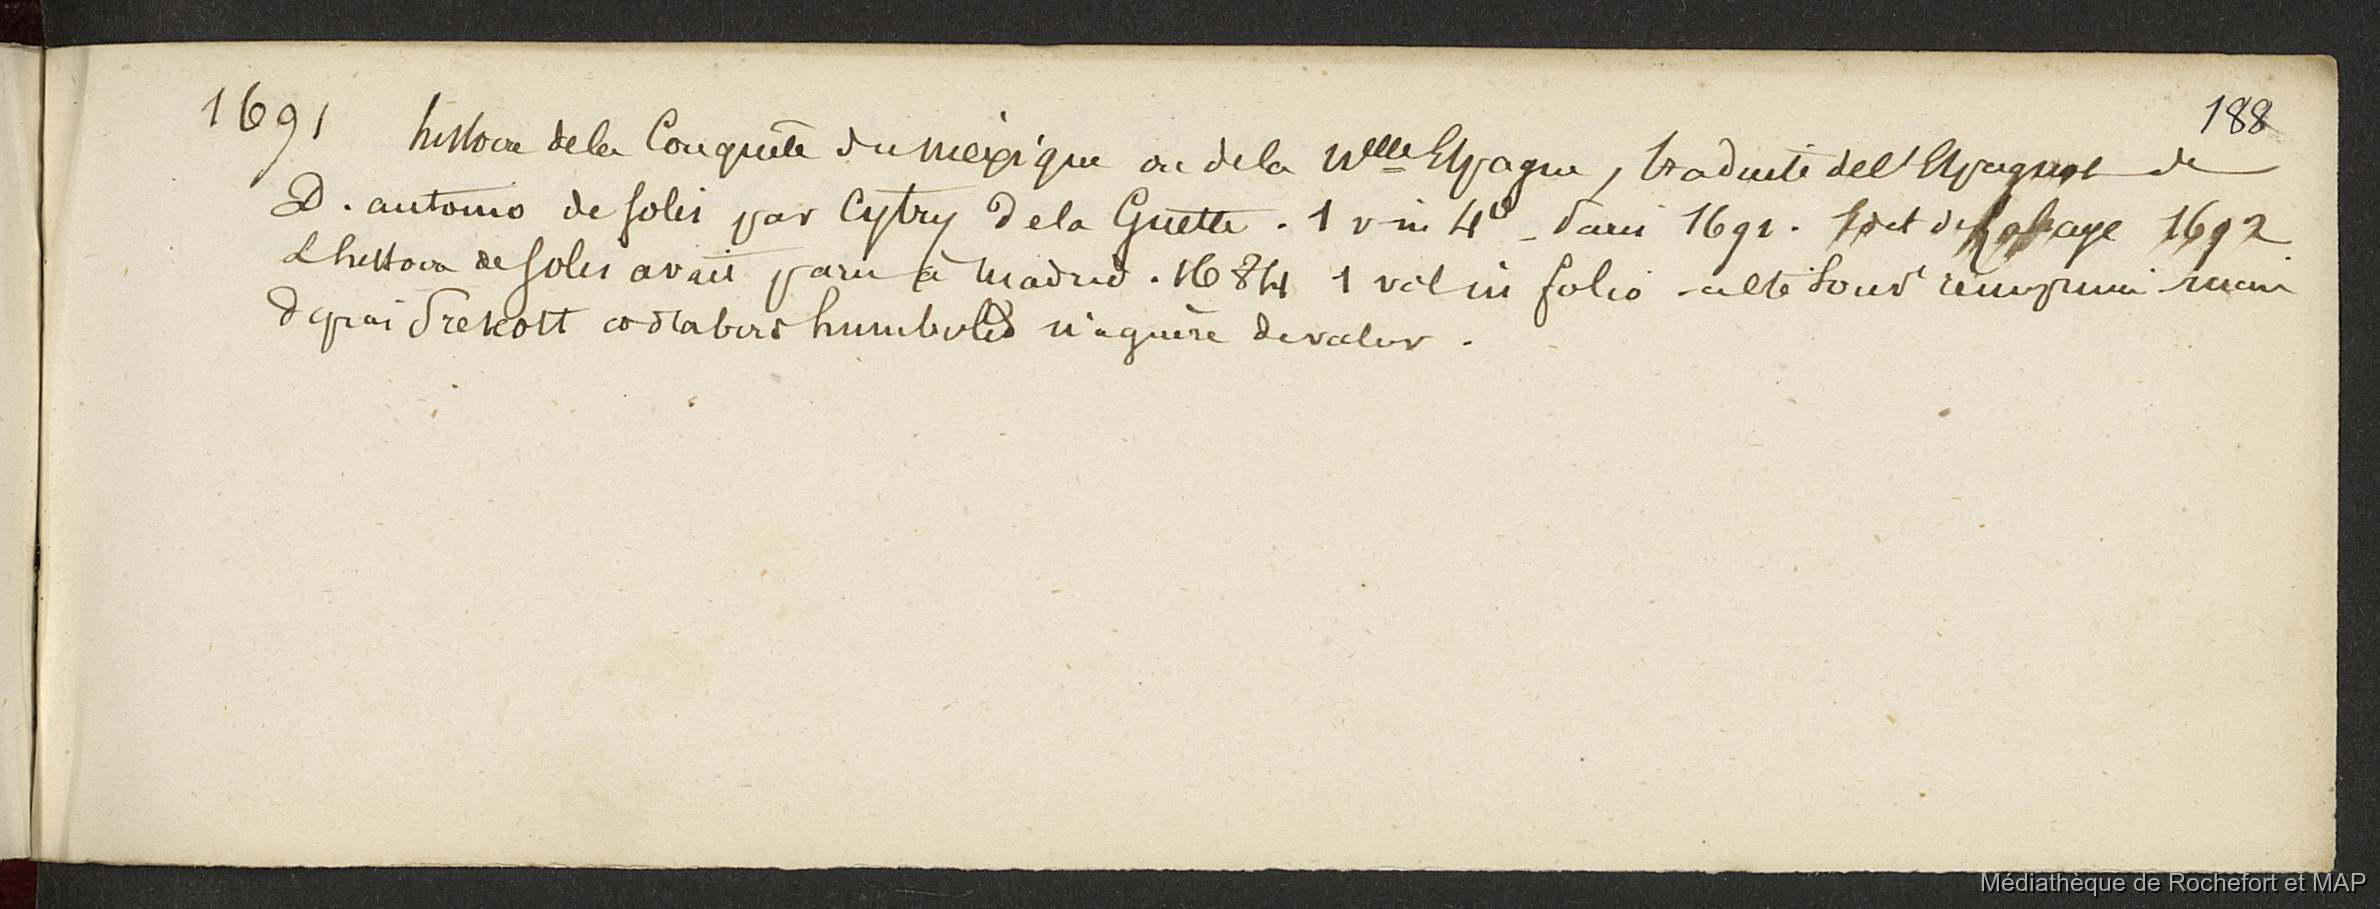 188
1691 histoire de la Conquête du Mexique ou de la Nlle Espagne, traduite de l'Espagnol de
D. antonio de Solis par Cytry de la Guette. 1 v in 4º - Paris 1691. de la haye 1692
L'histoire de Solis avait paru à Madrid. 1684 1 vol in folio - a été souvt réimprimé mais
depuis Preskott et d'abord humboldt n'a guère de valeur.
Médiathèque de Rochefort et MAP